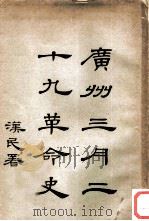 廣州三月二
十九革命史
漢民署
mtoou.info